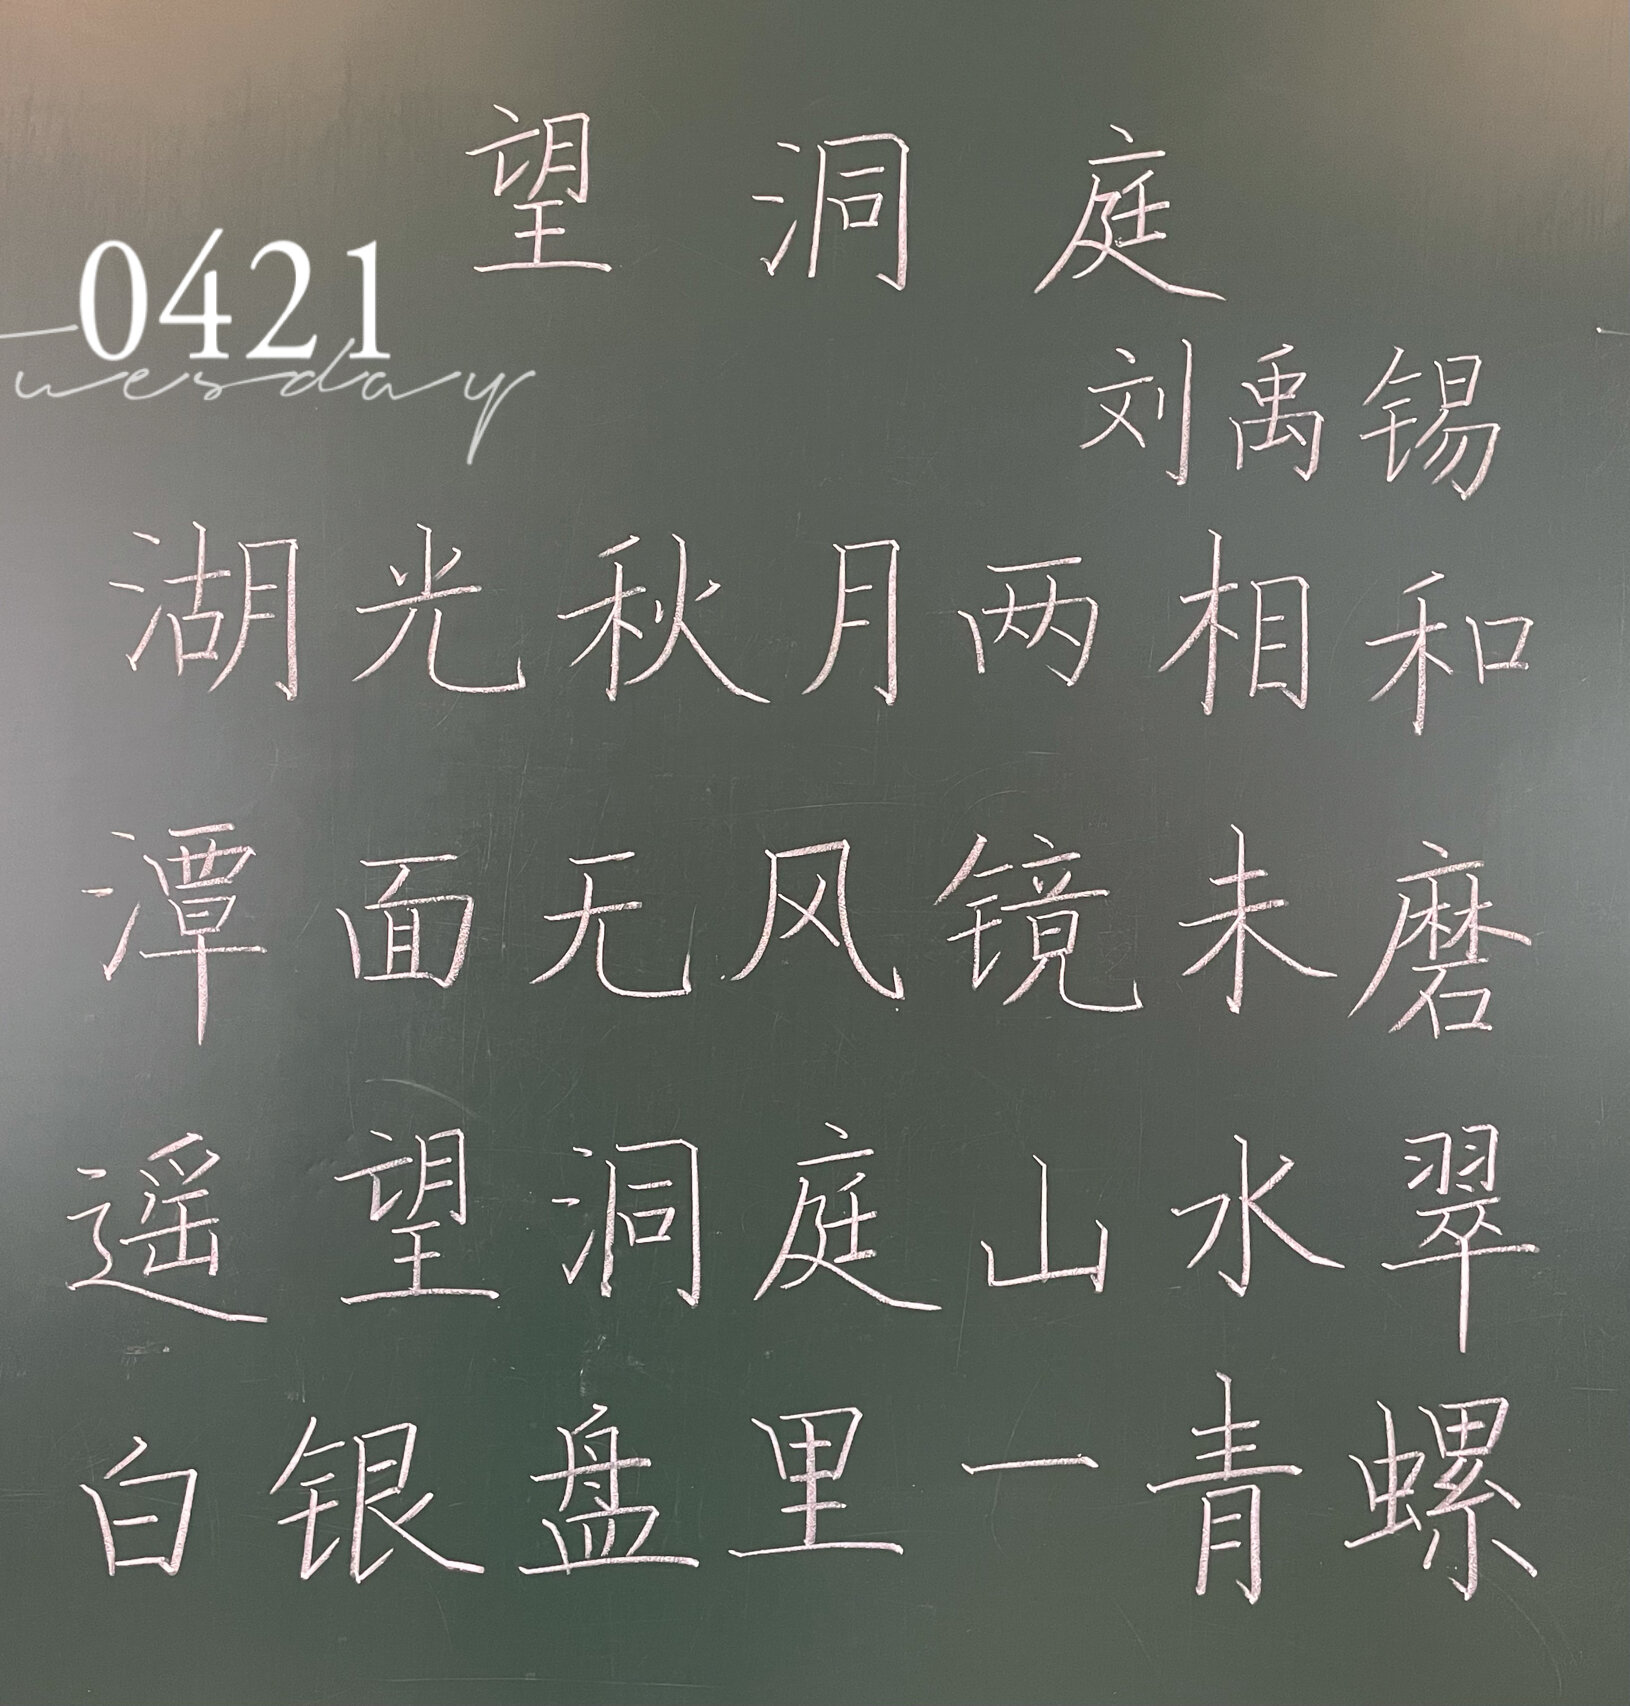 望洞庭
0421
刘禹锡
湖光秋月两相和
潭面无风镜未磨
遥望洞庭山水翠
白银盘里一青螺